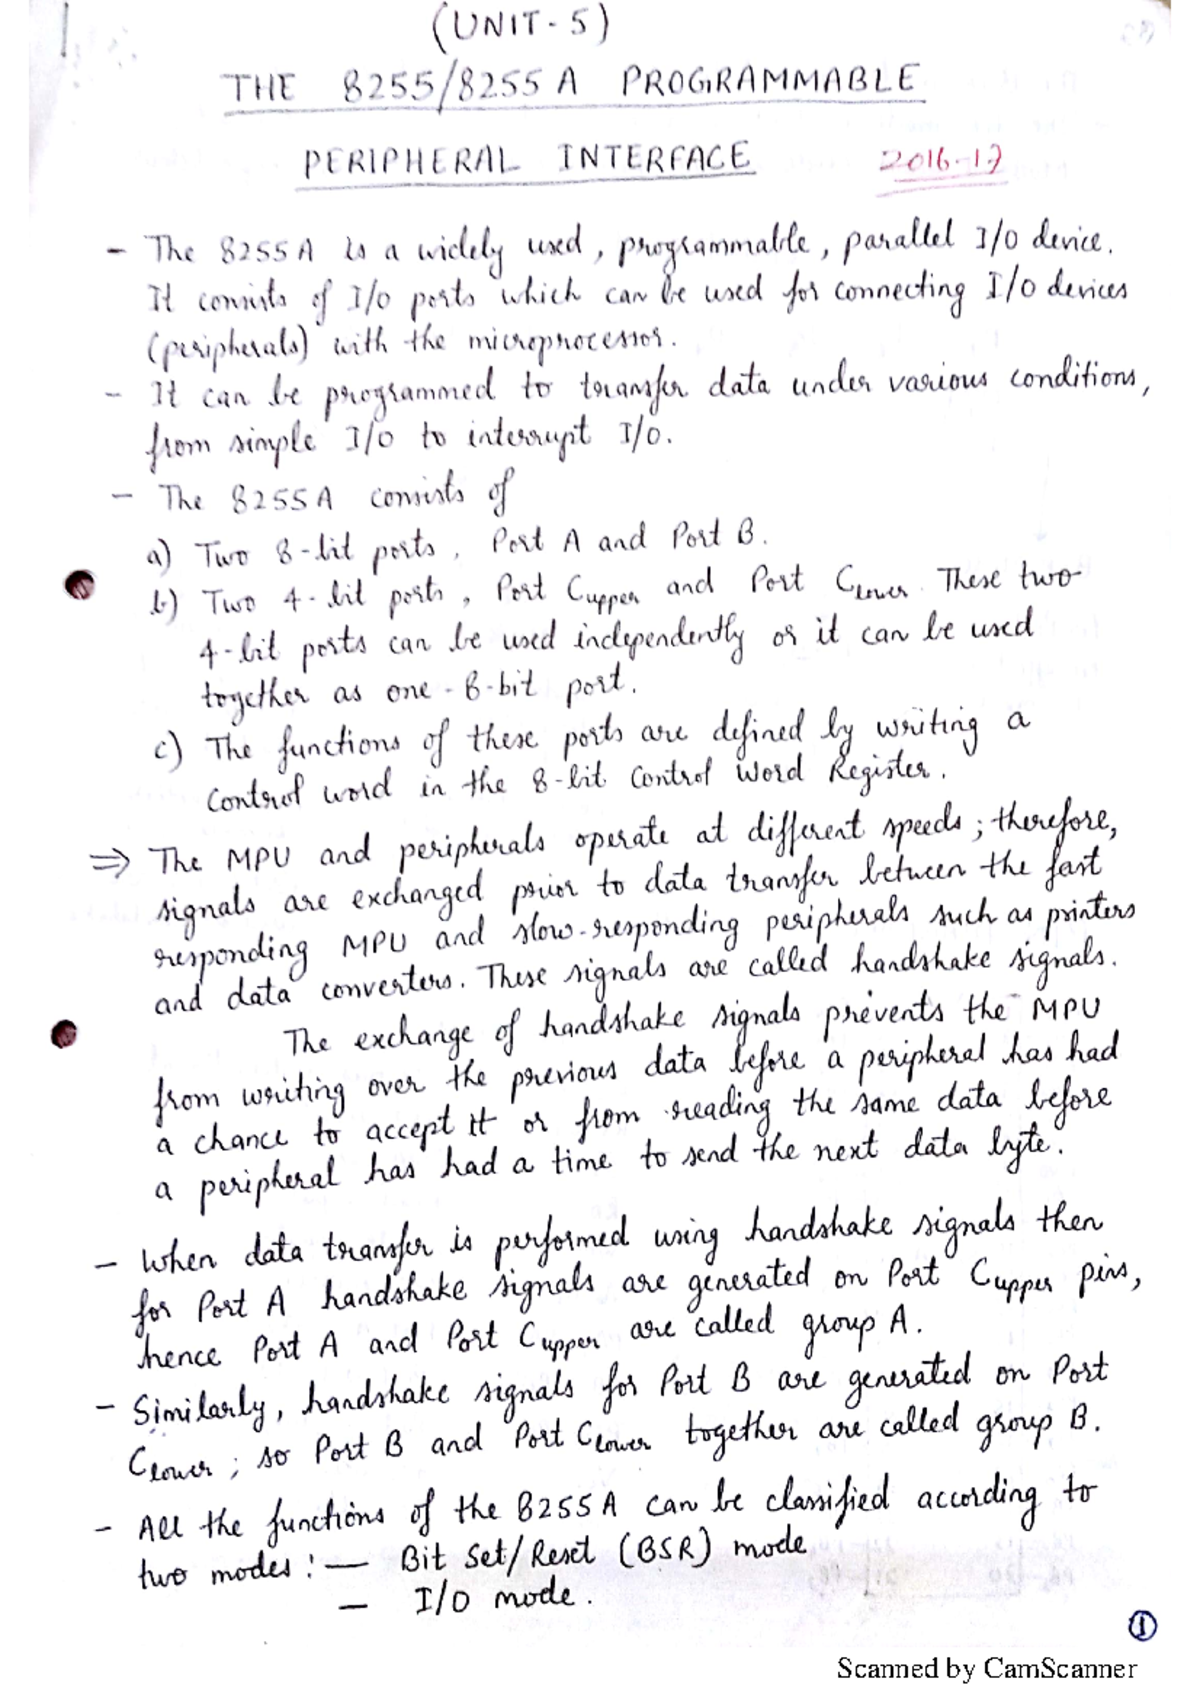 (UNIT-5)
THE 8255/8255A PROGRAMMABLE
PERIPHERAL INTERFACE 2016-17
- The 8255A is a widely used, programmable, parallel I/O device.
It consists of I/O ports which can be used for connecting I/O devices
(peripherals) with the microprocessor.
- It can be programmed to transfer data under various conditions,
from simple I/O to interrupt I/O.
- The 8255A consists of
a) Two 8-bit ports, Port A and Port B.
b) Two 4-bit ports, Port Cupper and Port Clower. These two
4-bit ports can be used independently or it can be used
together as one 8-bit port.
c) The functions of these ports are defined by writing a
control word in the 8-bit Control Word Register.
⇒ The MPU and peripherals operate at different speeds; therefore,
signals are exchanged prior to data transfer between the fast
responding MPU and slow-responding peripherals such as printers
and data converters. These signals are called handshake signals.
The exchange of handshake signals prevents the MPU
from writing over the previous data before a peripheral has had
a chance to accept it or from reading the same data before
a peripheral has had a time to send the next data byte.
- When data transfer is performed using handshake signals then
for Port A handshake signals are generated on Port Cupper pins,
hence Port A and Port Cupper are called group A.
- Similarly, handshake signals for Port B are generated on Port
Clower; so Port B and Port Clower together are called group B.
- All the functions of the 8255A can be classified according to
two modes:- Bit Set/Reset (BSR) mode
- I/O mode.
1
Scanned by CamScanner